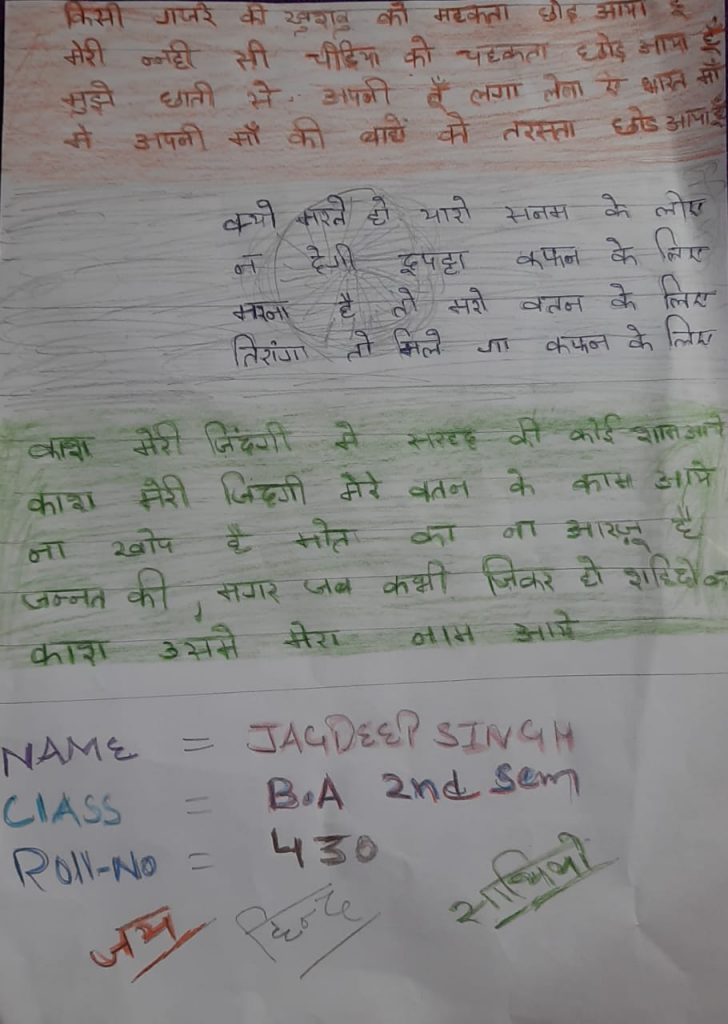 किसी गजरे की खुशबु को महकता छोड़ आया हूँ
मेरी नन्ही सी चीडिया को चहकता छोड़ आया हूँ
मुझे छाती से अपनी तूँ लगा लेना ऐ भारत माँ
में अपनी माँ की बाहों को तरसता छोड आया हूँ
क्यो मरते हो यारो सनम के लीए
न देगी दुपट्टा कफन के लिए
मरना है तो मरो वतन के लिए
तिरंगा तो मिले गा कफन के लिए
काश मेरी जिंदगी मे सरहद की कोई शाम आये
काश मेरी जिंदगी मेरे वतन के काम आये
ना खोप है मोत का ना आरजू है
जन्नत की, मगर जब कभी जिकर हो शहिदो का
काश उसमे मेरा नाम आये
NAME = JAGDEEP SINGH
ClASS = B.A 2nd Sem
Roll-No = 430
जय हिन्द साथियो